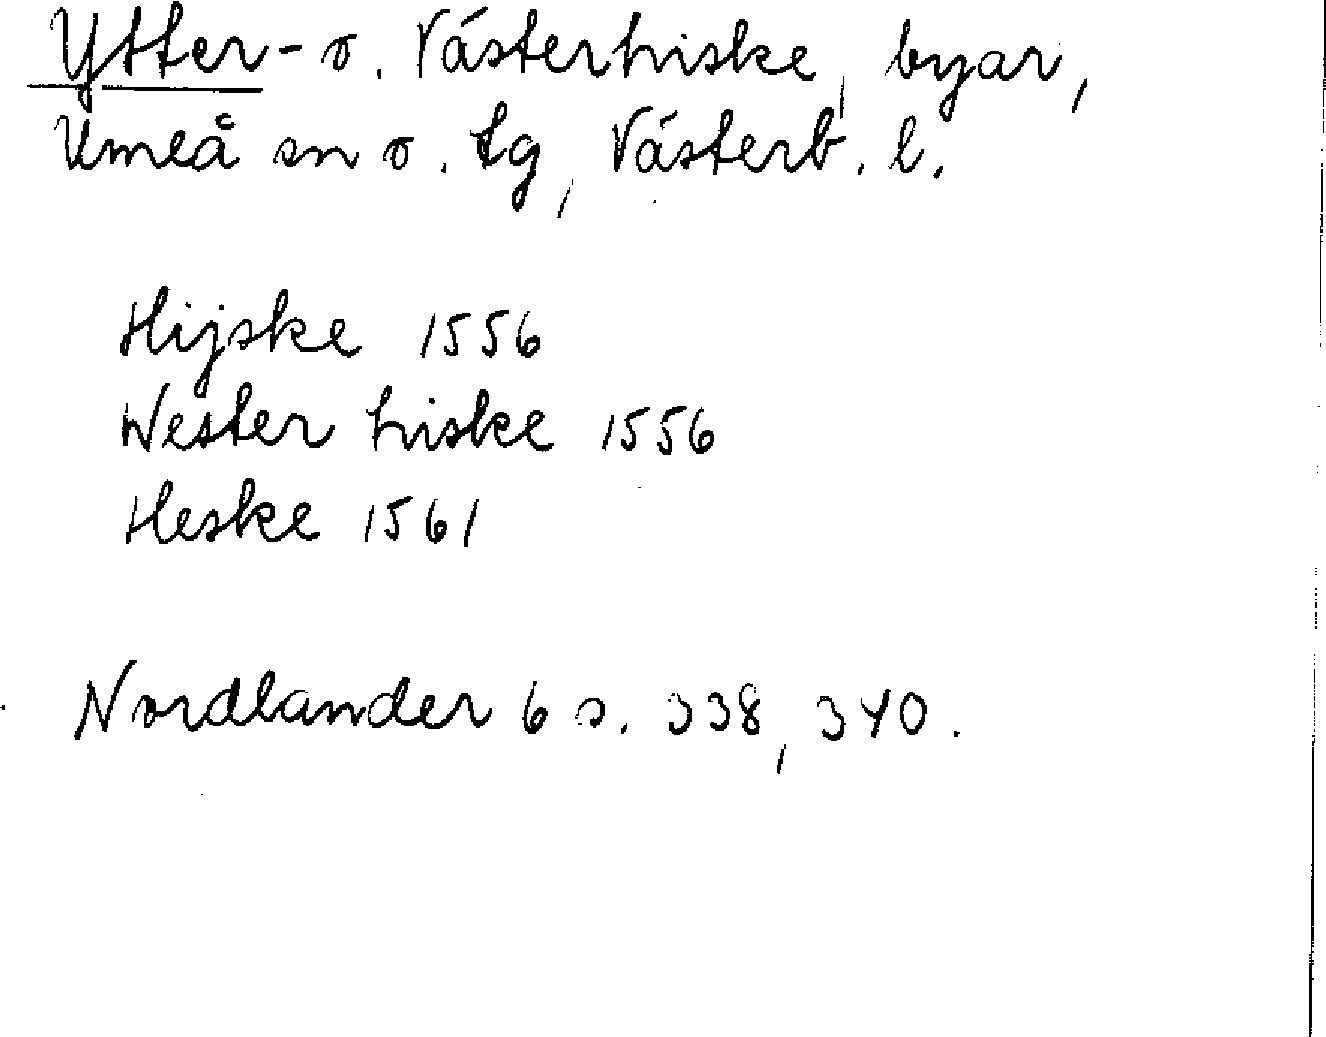 Ytter- o. Västerhiske, byar,
Umeå sn o. tg, Västerb. l.
Hijske 1556
Wester hiske 1556
Heske 1561
Nordlander 6 s. 338, 340.